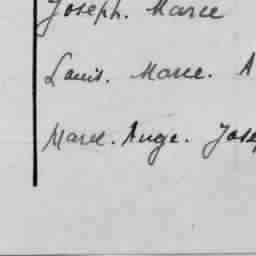 Joseph. Marie
Louis. Marie. A
Marie. Ange. Jose